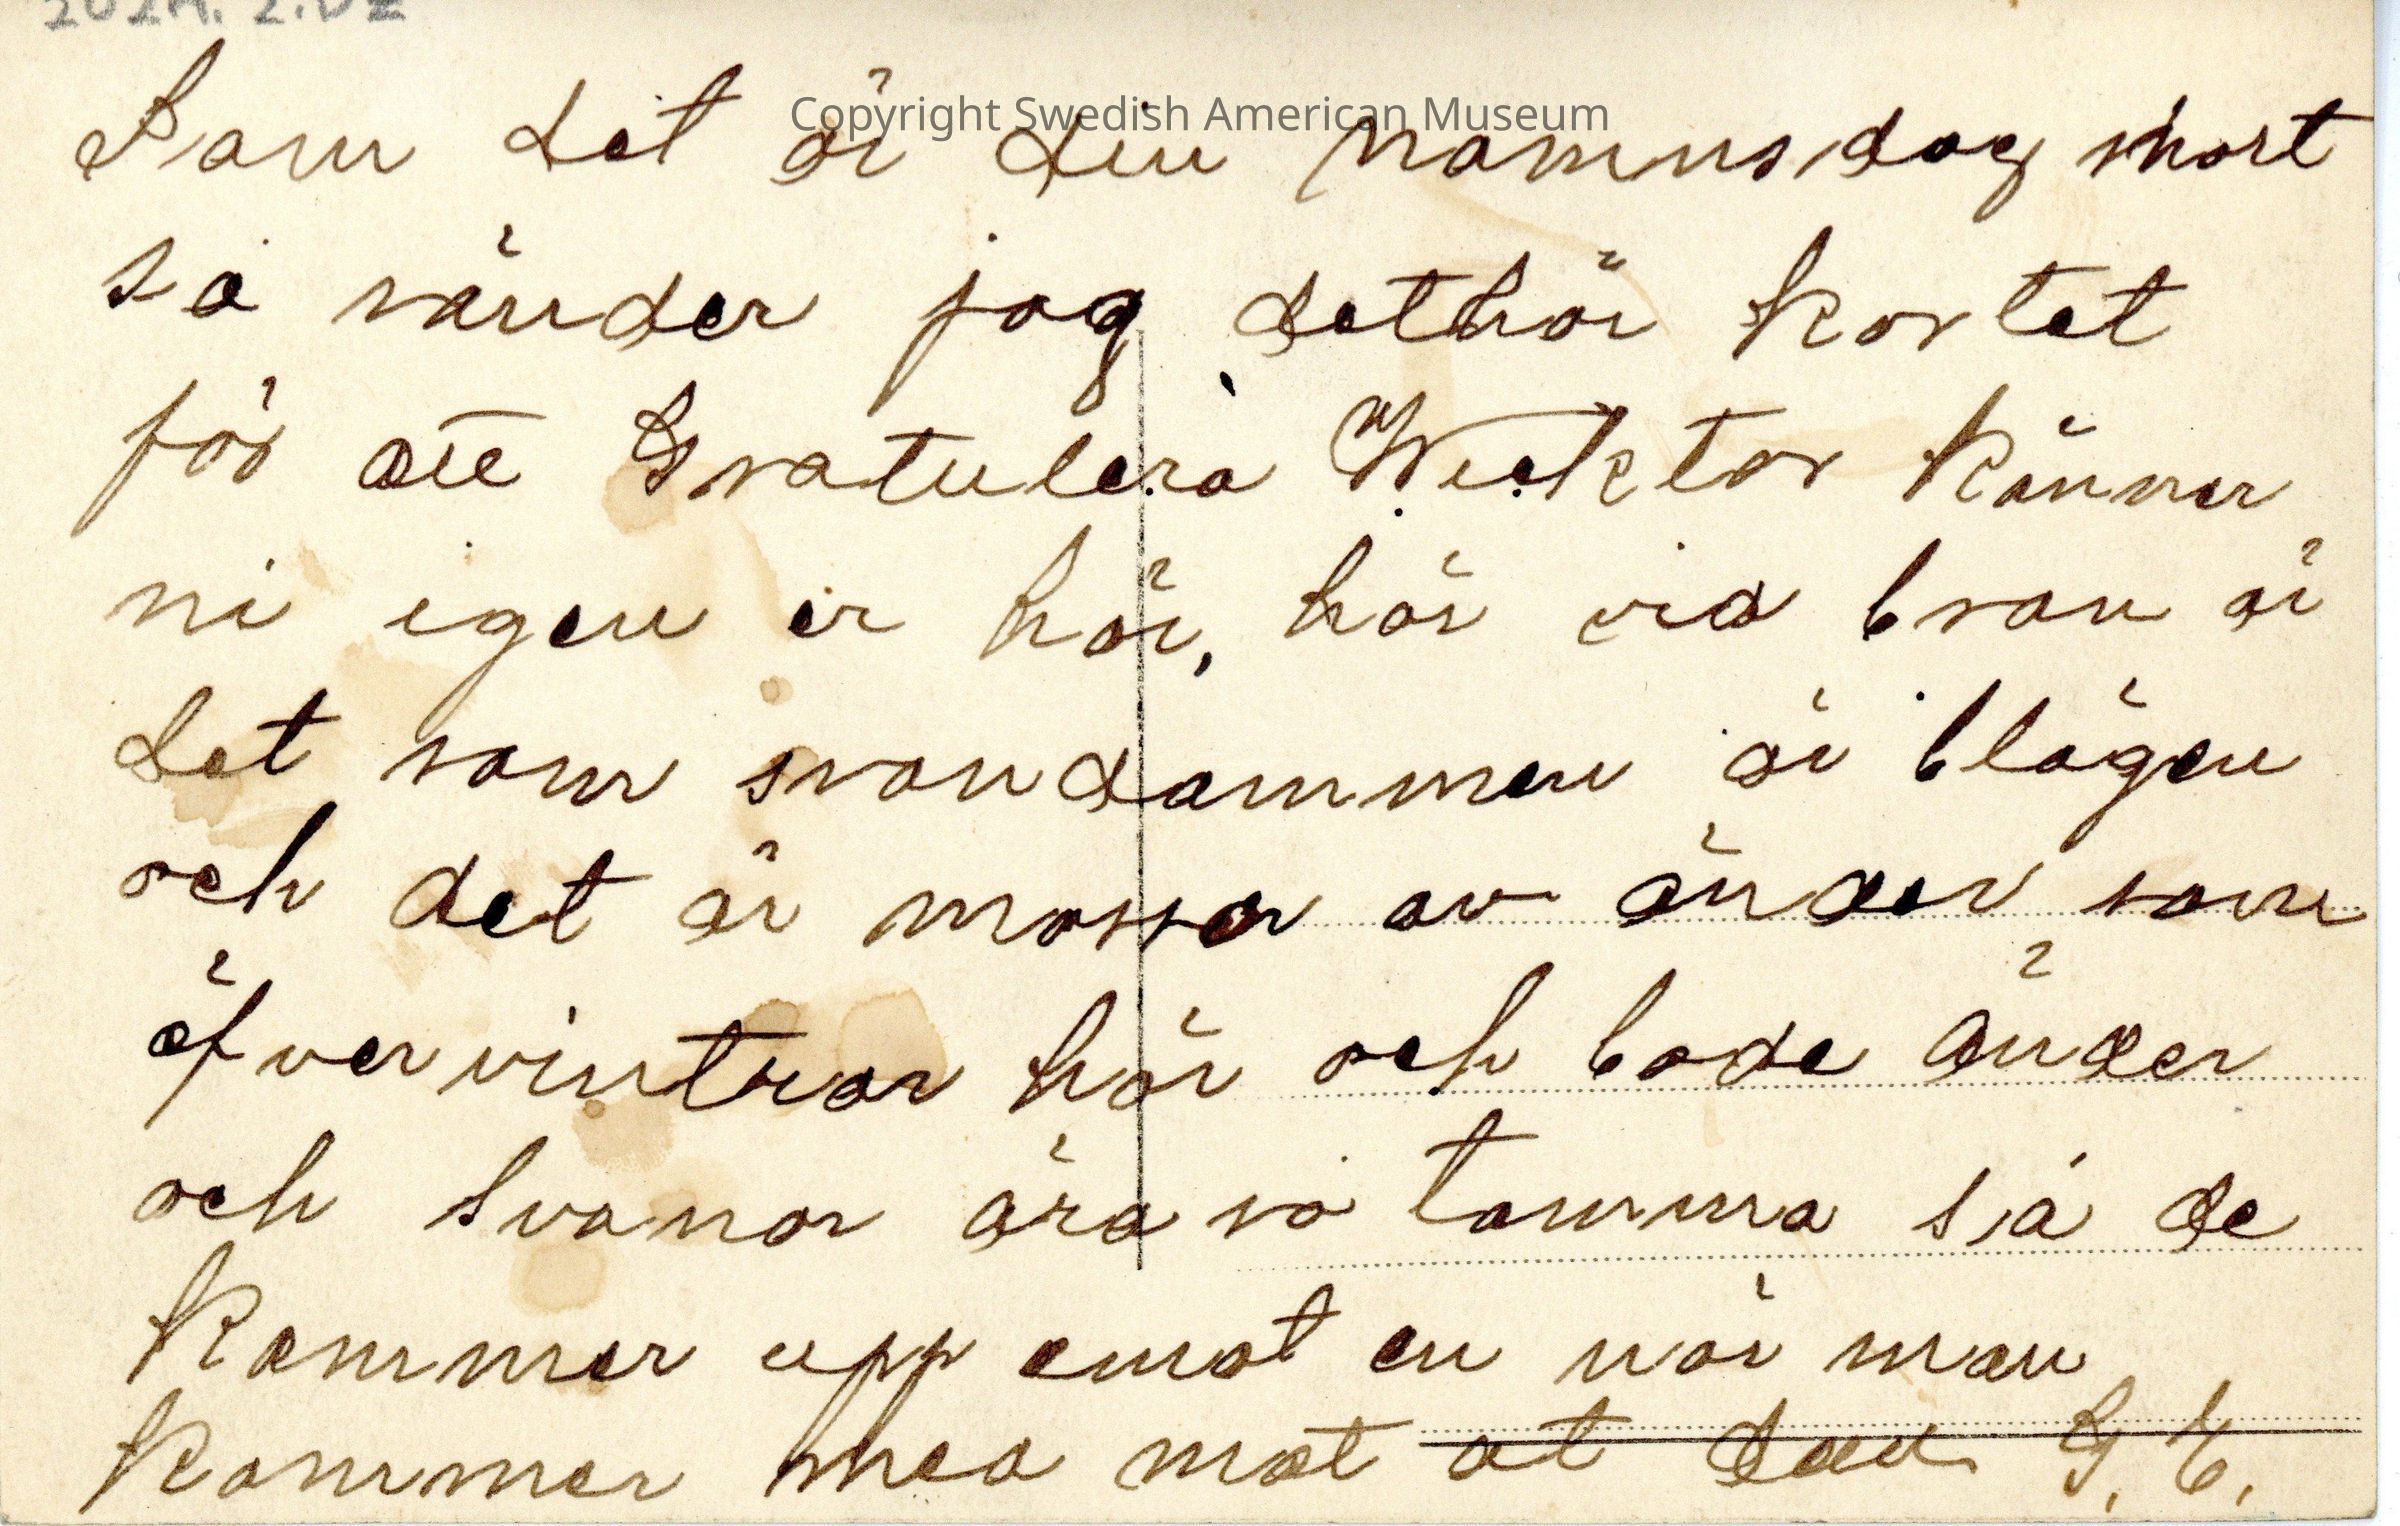 Som det är din namnsdag snart
så sänder jag dethär kortet
för att Gratulera Wicktor Känner
ni igen er här, här vid bron är
det som svandammen är belägen
och det är massor av änder som
öfvervintrar här och bode Änder
och Svanor ära så tamma så de
Kommer upp emot en når man
Kommer med mat åt dem G. E.
Copyright Swedish American Museum